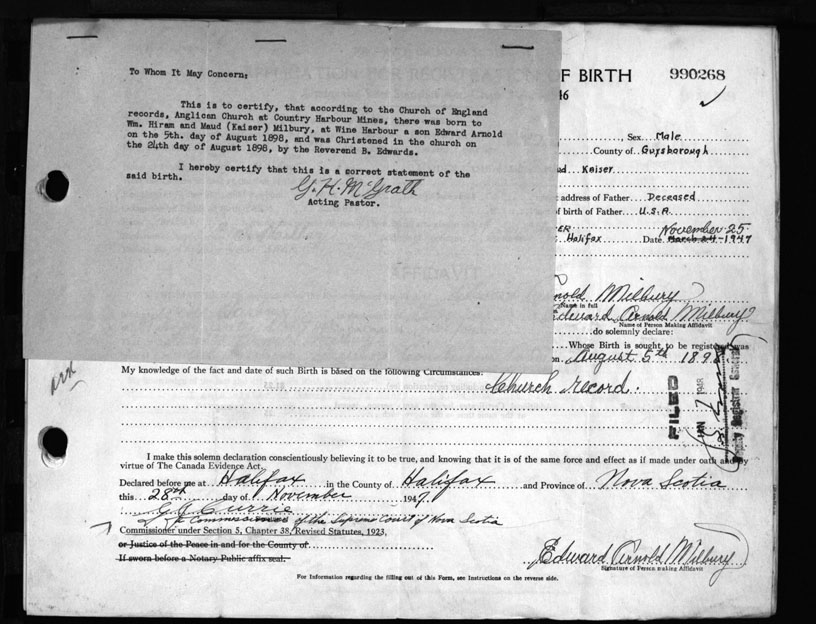 To Whom It May Concern:
This is to certify, that according to the Church of England
records, Anglican Church at Country Harbour Mines, there was born to
Wm. Hiram and Maud (Kaiser) Milbury, at Wine Harbour a son Edward Arnold
on the 5th. day of August 1898, and was Christened in the church on
the 24th day of August 1898, by the Reverend B. Edwards.
I hereby certify that this is a correct statement of the
said birth.
G. H. McGrath
Acting Pastor.
OF BIRTH 990268
46
Sex Male
County of Guysborough
Kaiser
address of Father Deceased
of birth of Father U.S.A.
November 25
Halifax Date March 24 1947
Arnold Milbury
Name in full
Edward Arnold Milbury
Name of Person Making Affidavit
do solemnly declare:
Whose Birth is sought to be registered was
August 5th 1898
My knowledge of the fact and date of such Birth is based on the following Circumstances:
Church record.
FILED
JAN 7 1948
Deputy Registrar General
I make this solemn declaration conscientiously believing it to be true, and knowing that it is of the same force and effect as if made under oath and by
virtue of The Canada Evidence Act.
Declared before me at Halifax in the County of Halifax and Province of Nova Scotia
this 28th day of November 1947.
G. A. Currie
A Commissioner of the Supreme Court of Nova Scotia
Commissioner under Section 5, Chapter 38, Revised Statutes, 1923,
or Justice of the Peace in and for the County of
If sworn before a Notary Public affix seal.
Edward Arnold Milbury
Signature of Person Making Affidavit
For Information regarding the filling out of this Form, see Instructions on the reverse side.